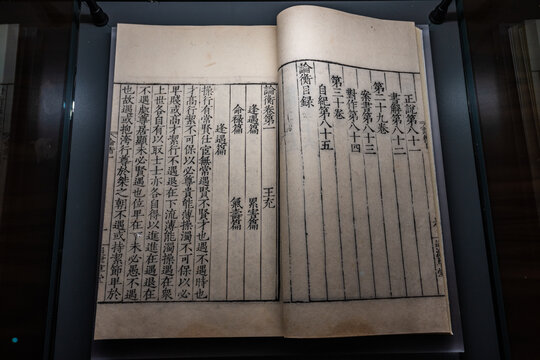 正說第八十一
書解第八十二
第二十九卷
案書第八十三
對作第八十四
第三十卷
自紀第八十五
論衡目錄
論衡卷第一 王充
逢遇篇 累害篇
命祿篇 氣壽篇
逢遇篇
操行有常賢仕宦無常遇賢不賢才也遇不遇時也
才高行絜不可保以必尊貴能薄操濁不可保以必
卑賤或高才絜行不遇退在下流薄能濁操遇在衆
上世各自有以取士士亦各自得以進進在遇退在
不遇處尊居顯未必賢遇也位卑在下未必愚不遇
也故遇或抱洿行尊於桀之朝不遇或持絜節卑於